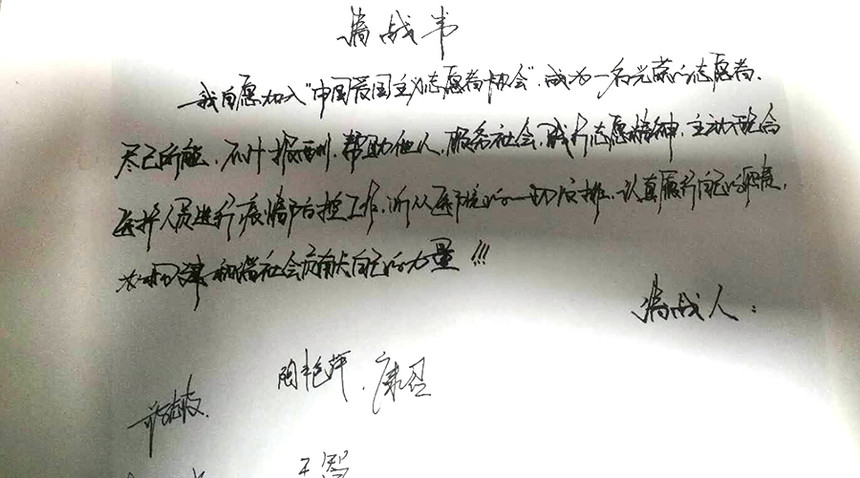 请战书
我自愿加入“中国爱国主义志愿者协会”,成为一名光荣的志愿者.
尽己所能,不计报酬,帮助他人,服务社会,践行志愿精神,主动配合
医护人员进行疫情防控工作,听从医院的一切安排,认真履行自己的职责,
为和谐社会贡献自己的力量!!!
请战人:
陶艳萍.康
王智